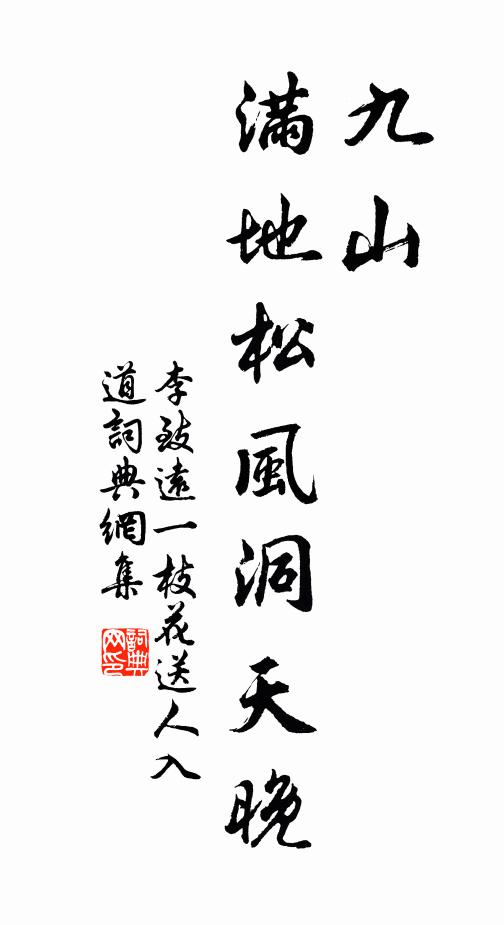 九山
滿地松風洞天晚
李致遠一枝花送人入
道詞典網集
詞典网印